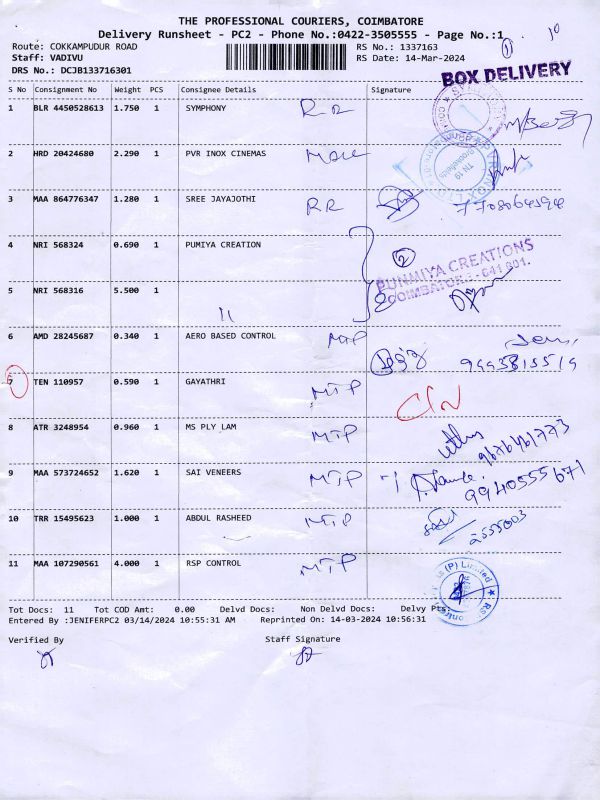 THE PROFESSIONAL COURIERS, COIMBATORE
Delivery Runsheet - PC2 - Phone No.:0422-3505555 - Page No.:1
Route: COKKAMPUDUR ROAD RS No.: 1337163 1 10
Staff: VADIVU RS Date: 14-Mar-2024
DRS No.: DCJB133716301
BOX DELIVERY
S No Consignment No Weight PCS Consignee Details Signature
1 BLR 4450528613 1.750 1 SYMPHONY RR
2 HRD 20424680 2.290 1 PVR INOX CINEMAS
TN 19
3 MAA 864776347 1.280 1 SREE JAYAJOTHI RR
4 NRI 568324 0.690 1 PUMIYA CREATION 2
PUNMIYA CREATIONS
COIMBATORE - 641 001.
5 NRI 568316 5.500 1 "
6 AMD 28245687 0.340 1 AERO BASED CONTROL MTP
7 TEN 110957 0.590 1 GAYATHRI MTP
8 ATR 3248954 0.960 1 MS PLY LAM MTP
9 MAA 573724652 1.620 1 SAI VENEERS MTP 9940555671
10 TRR 15495623 1.000 1 ABDUL RASHEED MTP
11 MAA 107290561 4.000 1 RSP CONTROL MTP
(P) Limited
Tot Docs: 11 Tot COD Amt: 0.00 Delvd Docs: Non Delvd Docs: Delvy Pts:
Entered By :JENIFERPC2 03/14/2024 10:55:31 AM Reprinted On: 14-03-2024 10:56:31
Verified By Staff Signature